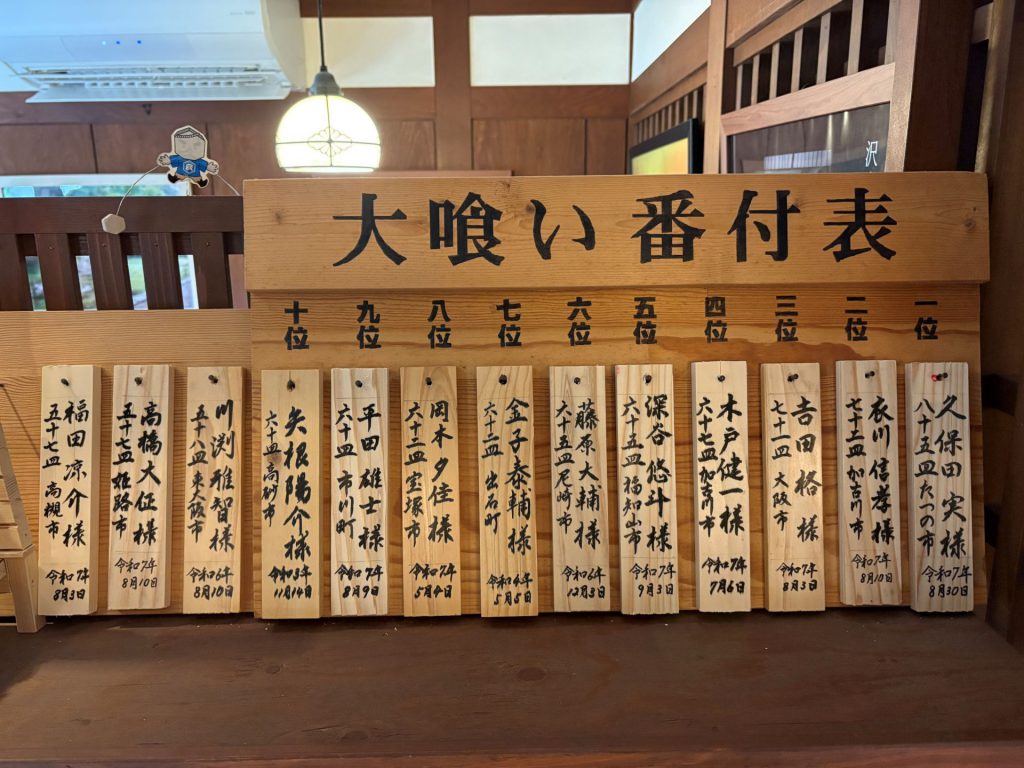 大喰い番付表
一位
久保田実様
八十五皿たつの市
令和7年
8月30日
二位
衣川信孝様
七十二皿加古川市
令和7年
8月10日
三位
吉田格様
七十一皿大阪市
令和3年
8月3日
四位
木戸健一様
六十七皿加古川市
令和7年
7月6日
五位
深谷悠斗様
六十五皿福知山市
令和7年
9月3日
六位
藤原大輔様
六十五皿尼崎市
令和6年
12月3日
七位
金子泰輔様
六十三皿出石町
令和4年
5月5日
八位
岡本夕佳様
六十二皿宝塚市
令和7年
5月4日
九位
平田雄士様
六十皿市川町
令和7年
8月9日
十位
矢根陽介様
六十皿高砂市
令和3年
11月14日
川渕雅智様
五十八皿東大阪市
令和6年
8月10日
高橋大征様
五十七皿姫路市
令和7年
8月10日
福田凉介様
五十七皿高槻市
令和7年
8月3日
沢